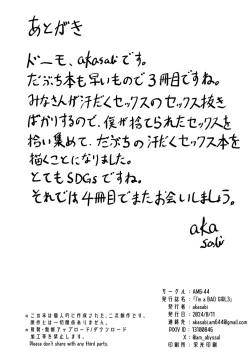 あとがき
ドーモ、akasabiです。
だぷち本も早いもので3冊目ですね。
みなさんが汗だくセックスのセックス抜き
ばかりするので、僕が捨てられたセックスを
拾い集めて、だぷちの汗だくセックス本を
描くことになりました。
とてもSDGsですね。
それでは4冊目でまたお会いしましょう。
aka
sabi
サークル：AMS-44
発行誌名：「I'm a BAD GIRL3」
発行者：akasabi
発行日：2024/8/11
連絡先：akasabi.am644@gmail.com
PIXIV ID：13180846
X：@am_abyssal
印刷所：栄光印刷
※この本は個人的に作成された、二次創作です。
原作とは一切関係ありません。
※複製・無断アップロード/ダウンロード
加工等を禁止します。
Please don't share with any third party.